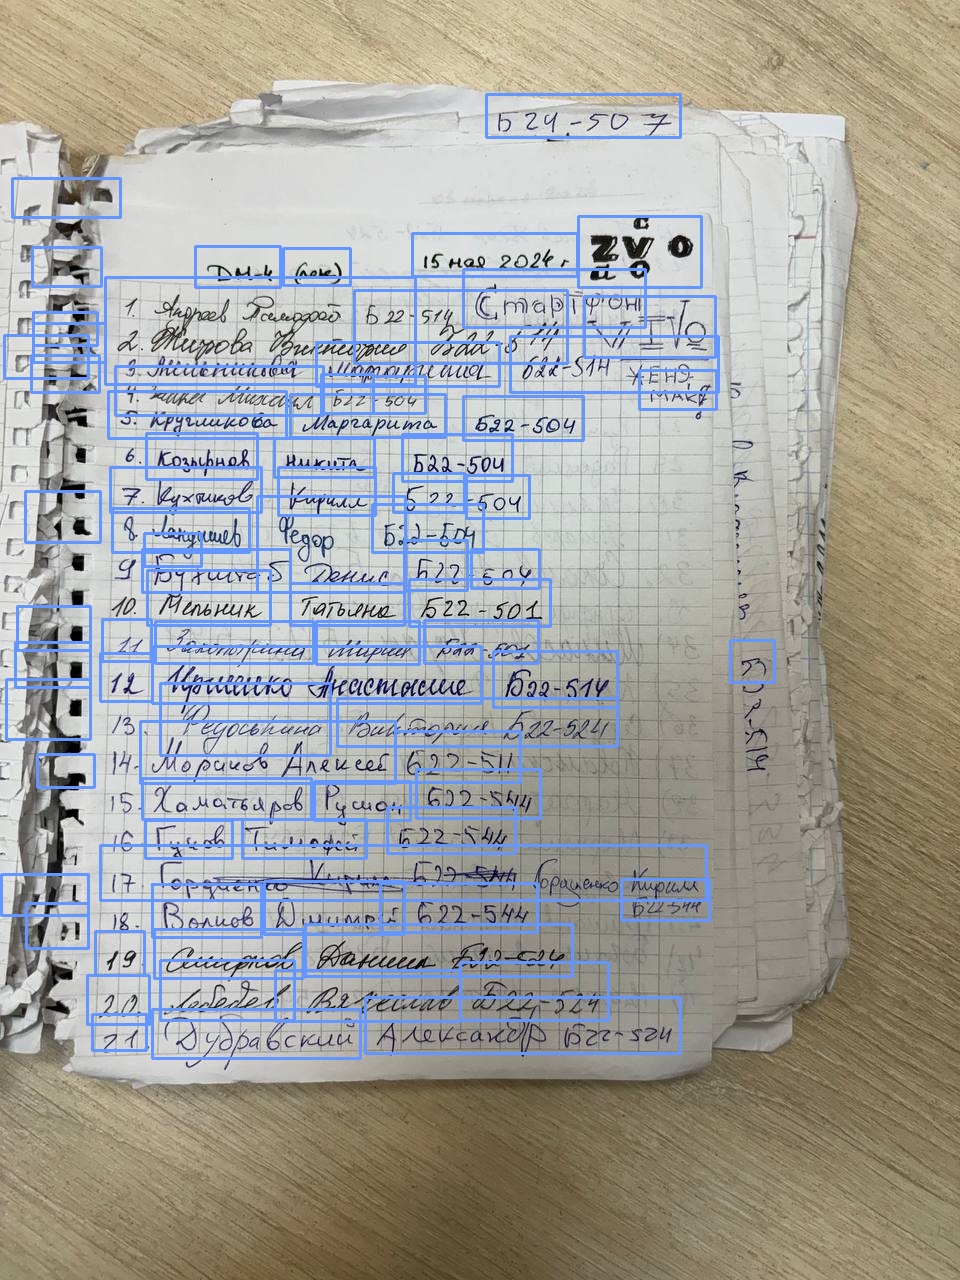 Б24-507
ДМ-4 (лек) 15 мая 2024 г.
1. Андреев Тимофей Б22-514 Стартфон
2. Жирова Виктория Б22-514
3. Мельникова Маргарита Б22-514
4. Михаил Б22-504
5. Кругликова Маргарита Б22-504
6. Козырнов Никита Б22-504
7. Кухтиков Кирилл Б22-504
8. Лапушев Фёдор Б22-504
9 Бухштаб Денис Б22-504
10. Мельник Татьяна Б22-501
11. Мария Б22-501
12 Анастасия Б22-514
13. Федоськина Виктория Б22-524
14. Алексей Б22-511
15. Хаматьяров Руслан Б22-544
16 Гуков Тимофей Б22-544
17. Гордиенко Кирилл Б22-544 Гордиенко Кирилл
Б22-544
18. Волков Дмитрий Б22-544
19. Смирнов Даниил Б22-524
20. Лебедев Вячеслав Б22-524
21. Дубравский Александр Б22-524